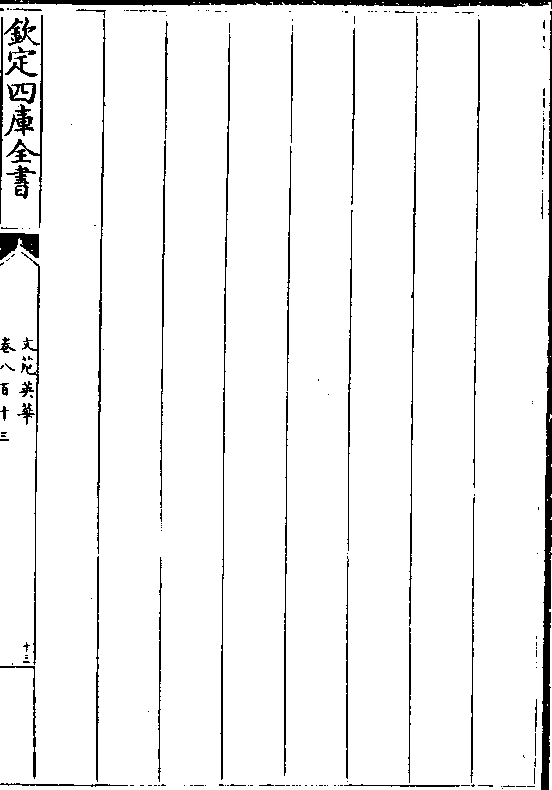 欽定四庫全書
文苑英華
卷八百十三
十三